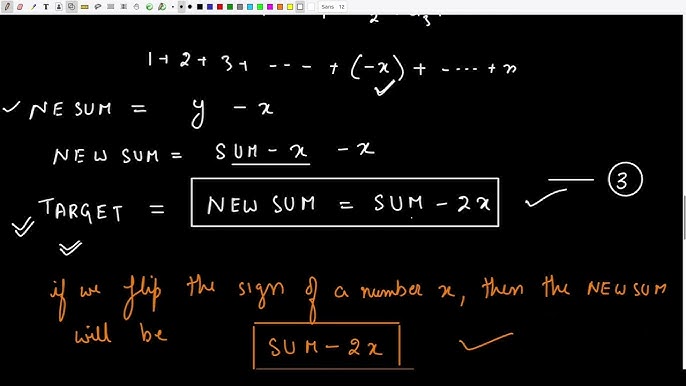 Sans 12
1 + 2 + 3 + - - - - + (-x) + - - - - + n
NE SUM = y - x
NEW SUM = SUM - x - x
TARGET = NEW SUM = SUM - 2x 3
if we flip the sign of a number x, then the NEWSUM
will be SUM - 2x